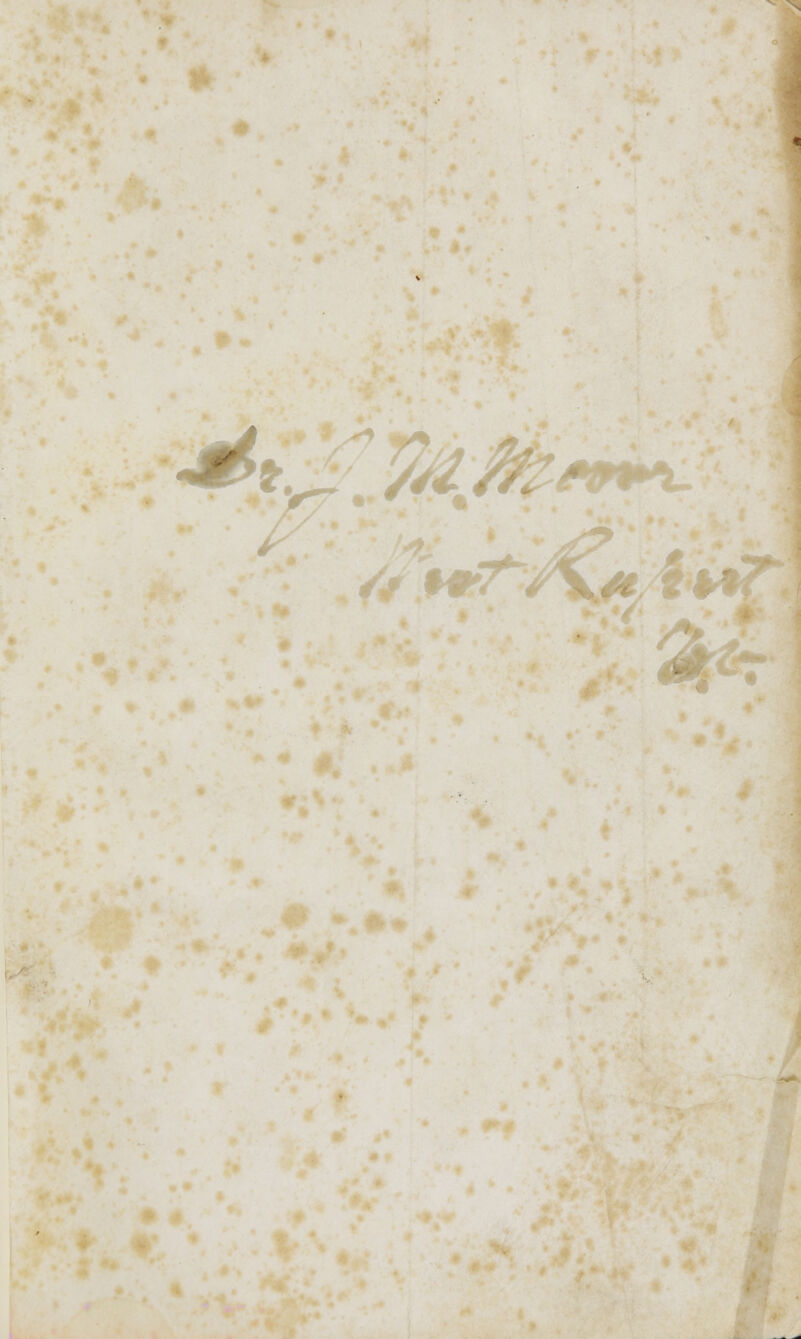 Dr. J. M. Moore
West Rupert
Vt.